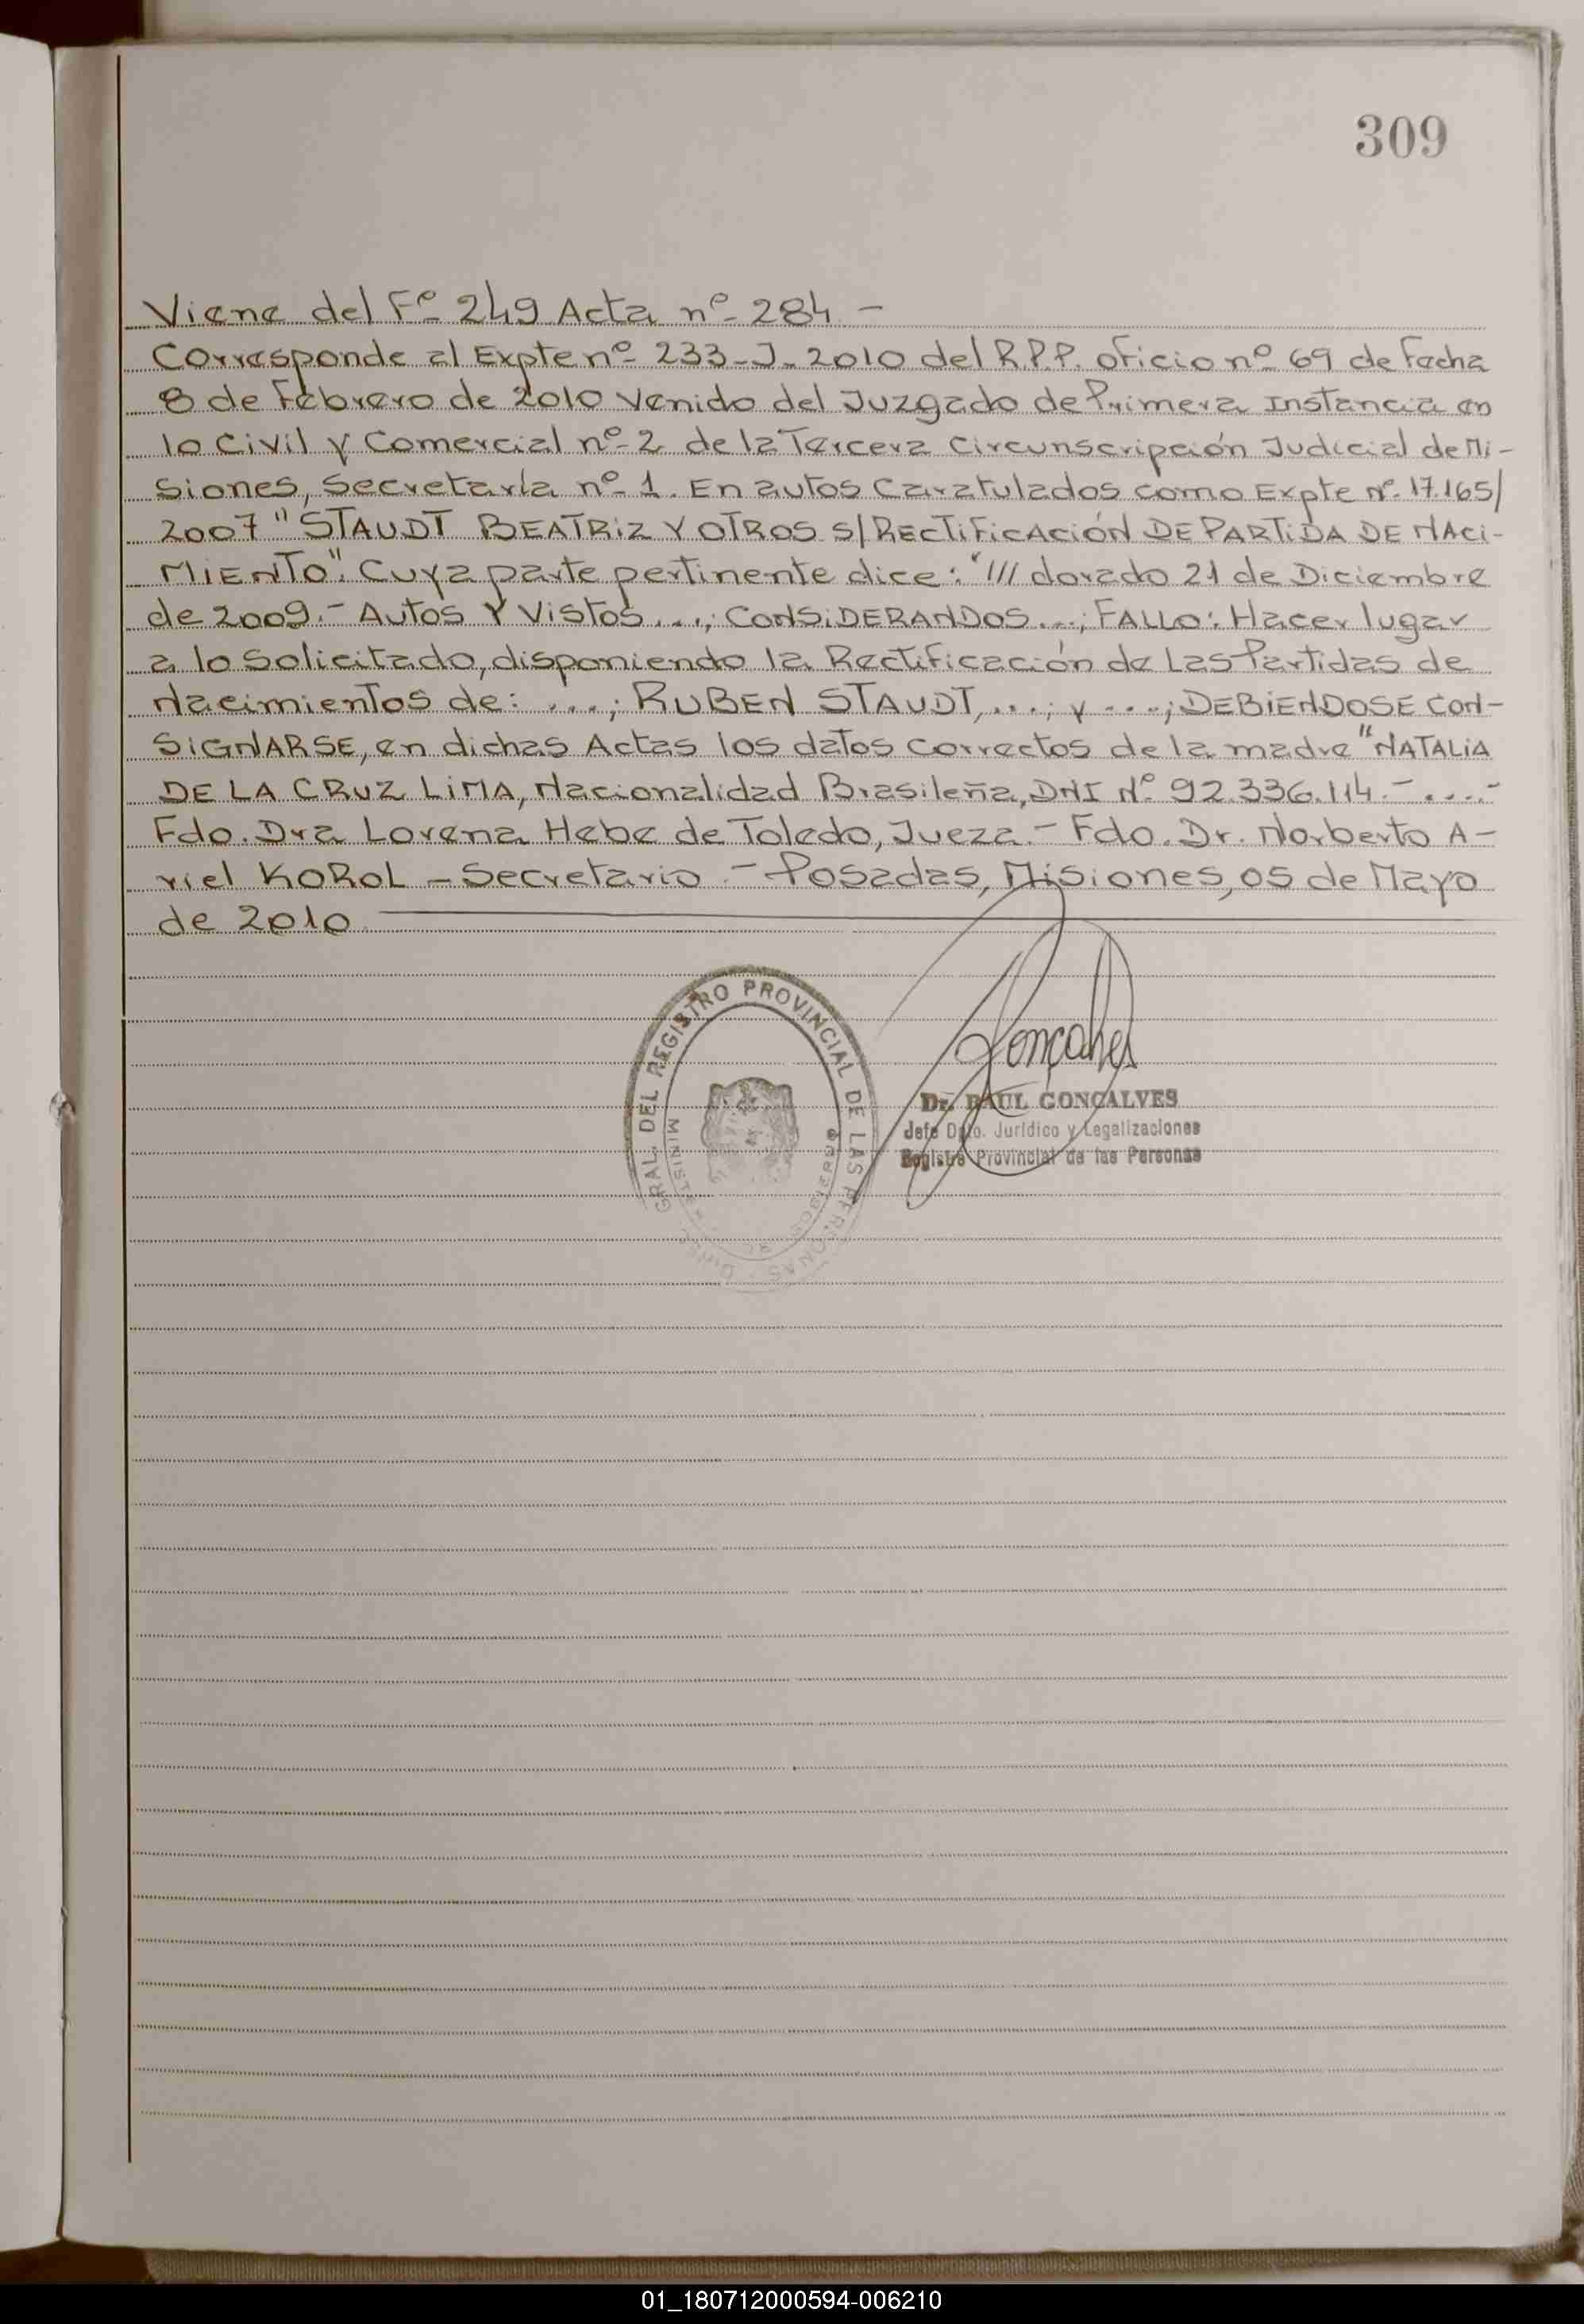 309
Viene del Fº 249 Acta nº 284 -
Corresponde al Expte nº 233-J-2010 del R.P.P. oficio nº 69 de Fecha
8 de Febrero de 2010 Venido del Juzgado de Primera Instancia en
lo Civil y Comercial nº 2 de la Tercera Circunscripción Judicial de Mi-
siones, Secretaría nº 1. En autos Caratulados como Expte Nº 17.165/
2007 "STAUDT BEATRIZ Y OTROS S/RECTIFICACIÓN DE PARTIDA DE NACI-
MIENTO". Cuya parte pertinente dice: "/// dorado 21 de Diciembre
de 2009.- Autos Y Vistos...; CONSIDERANDOS...; FALLO: Hacer lugar
a lo Solicitado, disponiendo la Rectificación de Las Partidas de
Nacimientos de: ...; RUBEN STAUDT, ...; y ...; DEBIENDOSE CON-
SIGNARSE, en dichas Actas los datos correctos de la madre "NATALIA
DE LA CRUZ LIMA, Nacionalidad Brasileña, DNI Nº 92.336.114.- ....-
Fdo. Dra Lorena Hebe de Toledo, Jueza.- Fdo. Dr. Norberto A-
riel KOROL - Secretario.- Posadas, Misiones, 05 de Mayo
de 2010.
GRAL. DEL REGISTRO PROVINCIAL DE LAS PERSONAS
Gonçalves
Dr. RAUL GONCALVES
Jefe Dpto. Jurídico y Legalizaciones
Registro Provincial de las Personas
01_180712000594-006210